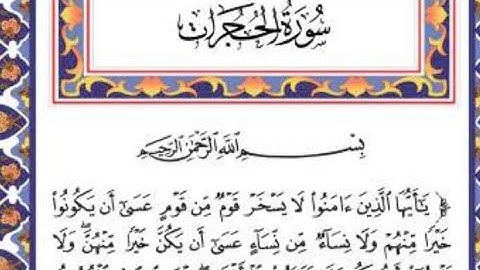 سُورَةُ الحُجُرَات
بِسْمِ اللَّهِ الرَّحْمَٰنِ الرَّحِيمِ
﴿ يَٰٓأَيُّهَا الَّذِينَ ءَامَنُوا۟ لَا يَسْخَرْ قَوْمٌ مِّن قَوْمٍ عَسَىٰٓ أَن يَكُونُوا۟
خَيْرًا مِّنْهُمْ وَلَا نِسَآءٌ مِّن نِّسَآءٍ عَسَىٰٓ أَن يَكُنَّ خَيْرًا مِّنْهُنَّ ۖ وَلَا